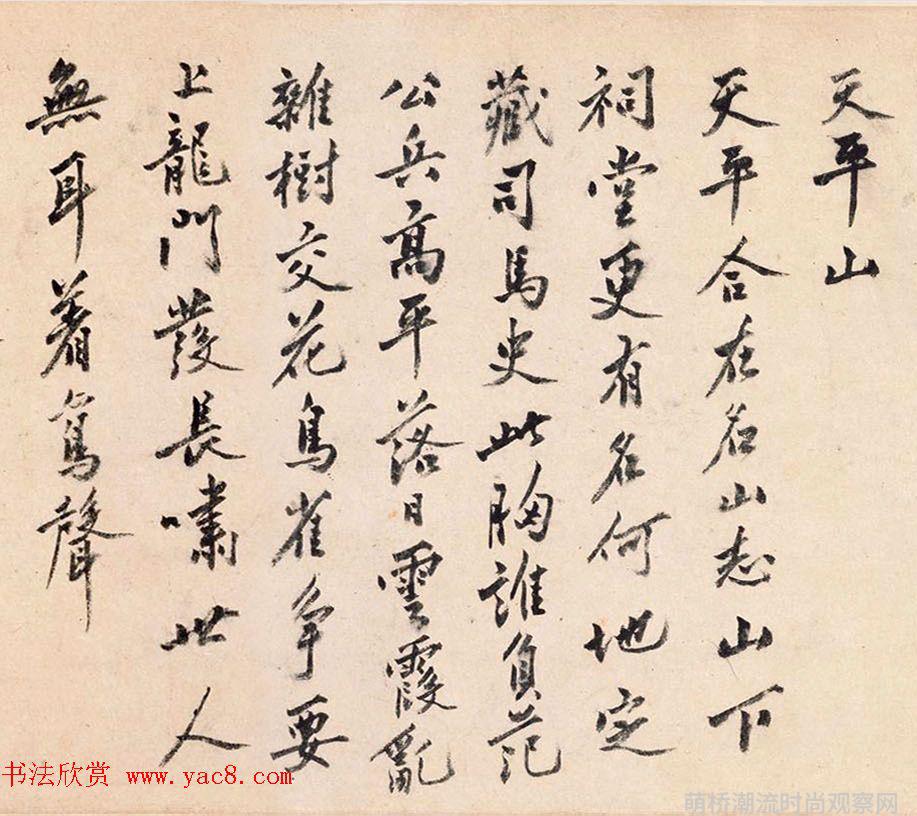 天平山
天平合在名山志山下
祠堂更有名何地定
藏司馬史此胸誰負范
公兵高平落日雲霞亂
雜樹交花鳥雀争要
上龍門發長嘯世人
無耳着鸞聲
书法欣赏 www.yac8.com
萌桥潮流时尚观察网